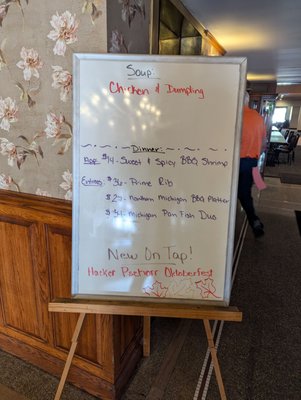 Soup
Chicken & Dumpling
Dinner:
App: $14- Sweet & Spicy BBQ Shrimp
Entrées: $36- Prime Rib
Northern Michigan BBQ Platter
Michigan Pan Fish Duo
New On Tap!
Hacker Pschorr Oktoberfest